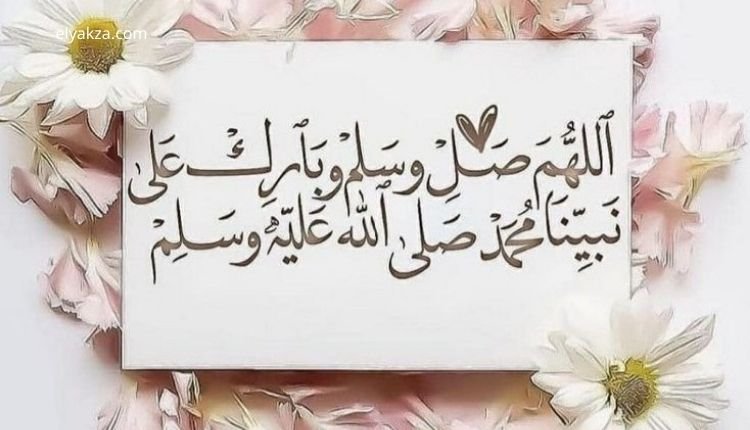 elyakza.com
اللهُمَ صَلِ وسَلمْ وبَارِكْ عَلى
نَبيِّنَا مُحمَدْ صَلى الله عَليّهِ وسَلِمْ